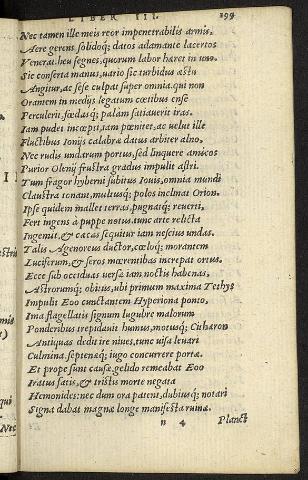 LIBER III. 199
Nec tamen ille meis reor impenetrabilis armis,
Aere gerens solidoq; datos adamante lacertos
Venerat. heu segnes, quorum labor haret in uno.
Sic conserta manus, uario sic turbidus æstu
Angitur, ac sese culpat super omnia. qui non
Orantem in medijs legatum cœtibus ense
Perculerit, fœdasq; palam satiauerit iras.
Iam pudet incœpti, iam pœnitet, ac uelut ille
Fluctibus Ionijs calabræ datus arbiter alno,
Nec rudis undarum portus, sed linquere amicos
Purior Olenij frustra gradus impulit astri.
Tum fragor hyberni subitus Iouis, omnia mundi
Claustra tonant, multusq; polos inclinat Orion.
Ipse quidem mallet terras, pugnatq; reuerti,
Fert ingens à puppe notus, tunc arte relicta
Ingemit, & cæcas sequitur iam nescius undas.
Talis Agenoreus ductor, cœloq; morantem
Luciferum, & seros mœrentibus increpat ortus.
Ecce sub occiduas uersæ iam noctis habenas,
Astrorumq; obitus, ubi primum maxima Tethys
Impulit Eoo cunctantem Hyperiona ponto,
Ima flagellatis signum lugubre malorum
Ponderibus trepidauit humus, motusq; Cithæron
Antiquas dedit ire niues, tunc uisa leuari
Culmina septenæq; iugo concurrere portæ.
Et prope sunt causæ, gelido remeabat Eoo
Iratus fatis, & tristis morte negata
Hemonides: nec dum ora patent, dubiusq; notari
Signa dabat magnæ longe manifesta ruinæ.
n 4 Planct